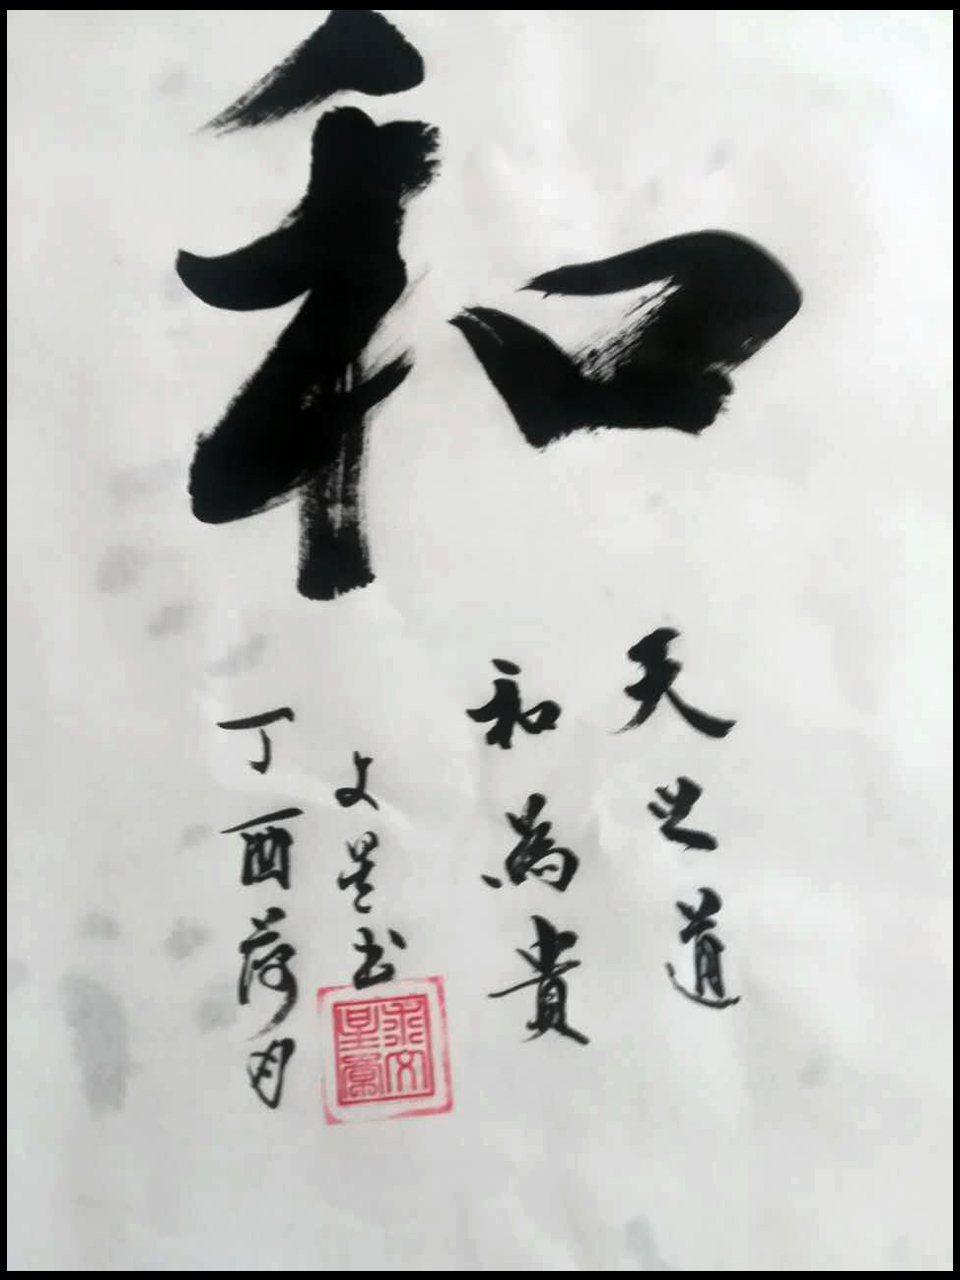 和
天之道
和為貴
文景书
丁酉荷月